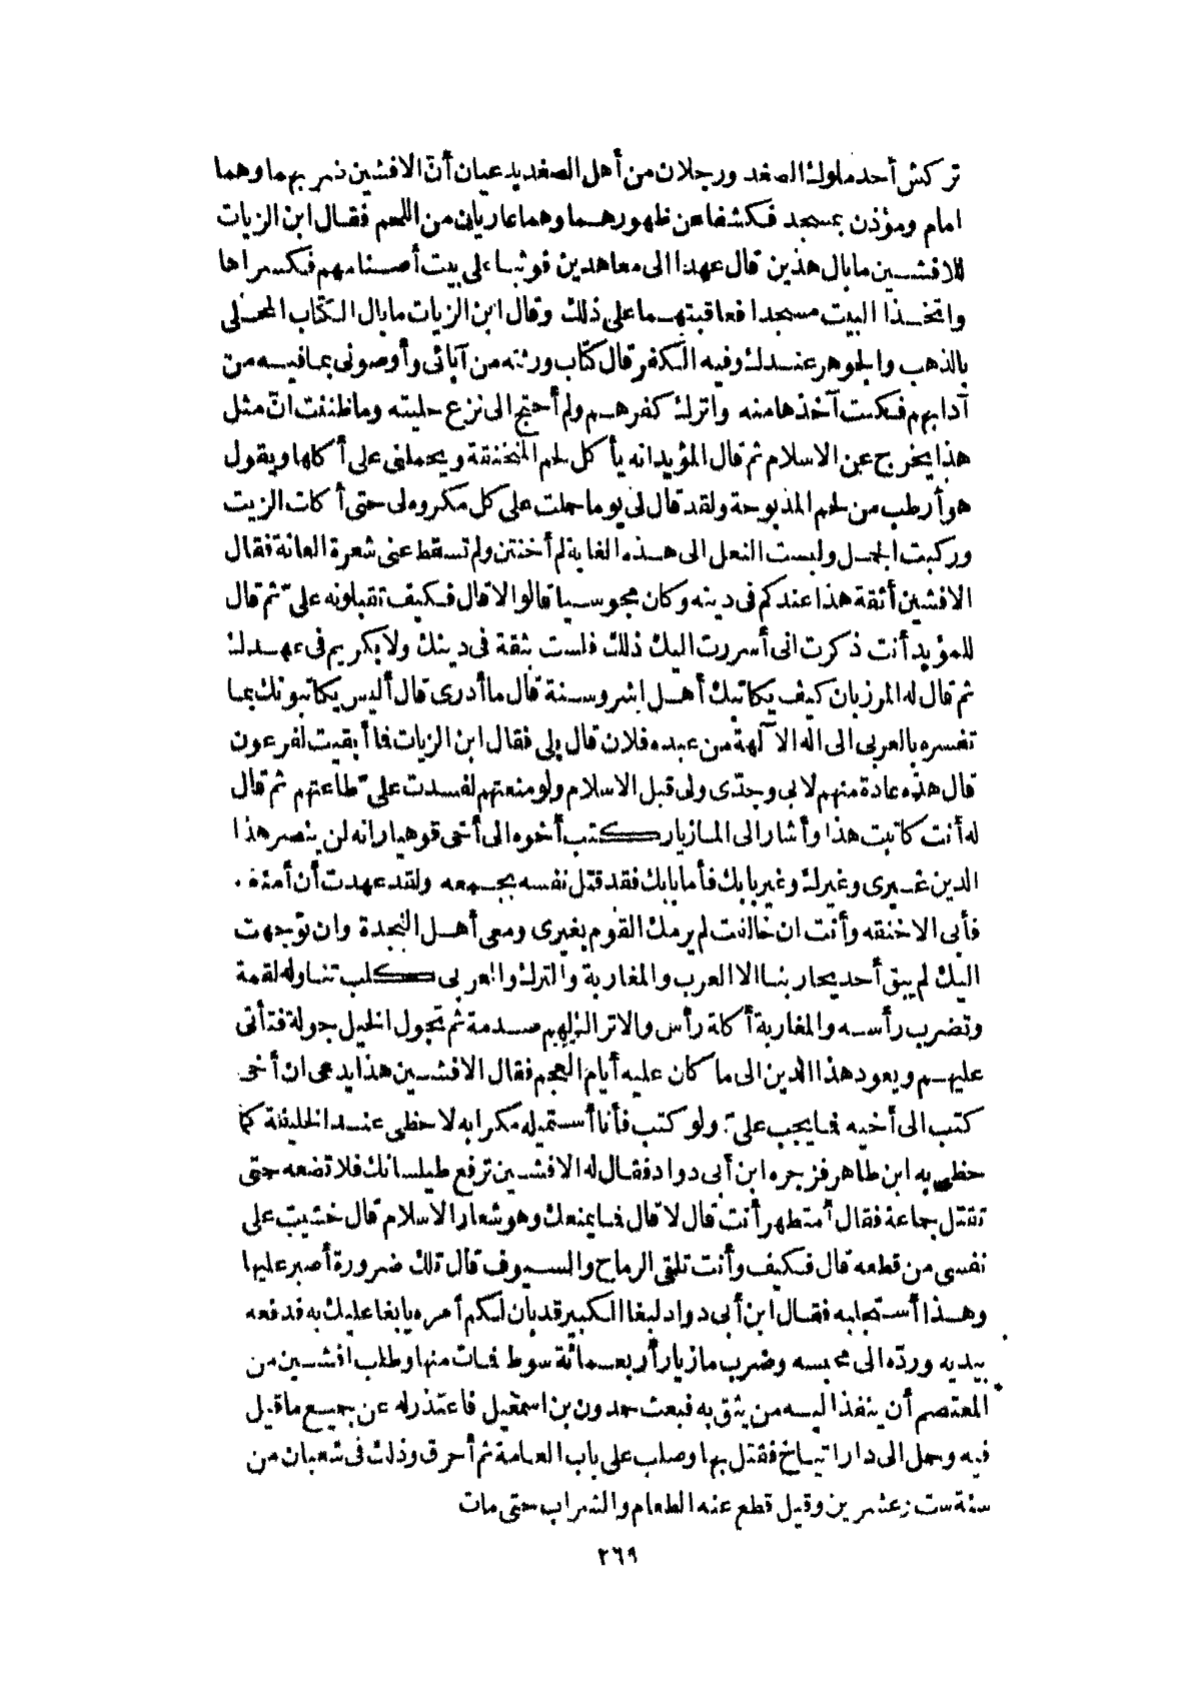 تركش أحد ملوك الصغد ورجلان من أهل الصغد يدعيان أنّ الافشين ضربهما وهما
امام ومؤذن بمسجد فكشفا عن ظهورهما وهما عاريان من اللحم فقال ابن الزيات
للافشين ما بال هذين قال عهدا الى معاهدين فوثبا على بيت أصنامهم فكسراها
واتخذا البيت مسجدا فعاقبتهما على ذلك وقال ابن الزيات ما بال الكتاب المحلى
بالذهب والجوهر عندك وفيه الكفر قال كتاب ورثته من آبائى وأوصونى بما فيه من
آدابهم فكنت آخذها منه واترك كفرهم ولم أحتج الى نزع حليته وما ظننت انّ مثل
هذا يخرج عن الاسلام ثم قال المؤيد انه يأكل لحم المنخنقة ويحملنى على أكلها ويقول
هو أرطب من لحم المذبوحة ولقد قال لى يوما حملت على كل مكروه لى حتى أكلت الزيت
وركبت الجمل ولبست النعل الى هذه الغاية لم أختتن ولم تسقط عنى شعرة العانة فقال
الافشين أثقة هذا عندكم فى دينه وكان مجوسيا قالوا لا قال فكيف تقبلونه علىّ ثم قال
للمؤيد أنت ذكرت انى أسررت اليك ذلك فلست بثقة فى دينك ولا بكريم فى عهدك
ثم قال له المرزبان كيف يكاتبك أهل اشروسنة قال ما أدرى قال أليس يكاتبونك بما
تفسره بالعربى الى اله الآلهة من عبده فلان قال بلى فقال ابن الزيات فما أبقيت لفرعون
قال هذه عادة منهم لابى وجدّى ولى قبل الاسلام ولو منعتهم لفسدت علىّ طاعتهم ثم قال
له أنت كاتبت هذا وأشار الى المازيار كتب أخوه الى أخى قوهيار انه لن ينصر هذا
الدين غيرى وغيرك وغير بابك فأما بابك فقد قتل نفسه بجمعه ولقد عهدت أن أمنعه
فأبى الا خنقه وأنت ان خالفت لم يرمك القوم بغيرى ومعى أهل النجدة وان توجهت
اليك لم يبق أحد يحاربنا الا العرب والمغاربة والترك والعربى كلب تناوله لقمة
وتضرب رأسه والمغاربة أكلة رأس والاتراك لهم صدمة ثم تجول الخيل جولة فتأتى
عليهم ويعود هذا الدين الى ما كان عليه أيام العجم فقال الافشين هذا يدعى ان أخى
كتب الى أخيه فما يجب علىّ ولو كتب فأنا أستميله مكرا به لاحظى عند الخليفة كما
حظى به ابن طاهر فزجره ابن أبى دواد فقال له الافشين ترفع طيلسانك فلا تضعه حتى
تقتل جماعة فقال أمتطهر أنت قال لا قال فما يمنعك وهو شعار الاسلام قال خشيت على
نفسى من قطعه قال فكيف وأنت تلقى الرماح والسيوف قال تلك ضرورة أصبر عليها
وهذا أستجلبه فقال ابن أبى دواد لبغا الكبير قد بان لكم أمره يا بغا عليك به فدفعه
بيديه وردّه الى محبسه وضرب مازيار أربعمائة سوط فمات منها وطلب افشين من
المعتصم أن ينفذ اليه من يثق به فبعث حمدون بن اسمعيل فاعتذر له عن جميع ما قيل
فيه وحمل الى دار ايتاخ فقتل بها وصلب على باب العامة ثم أحرق وذلك فى شعبان من
سنة ست وعشرين وقيل قطع عنه الطعام والشراب حتى مات
٢٦٩